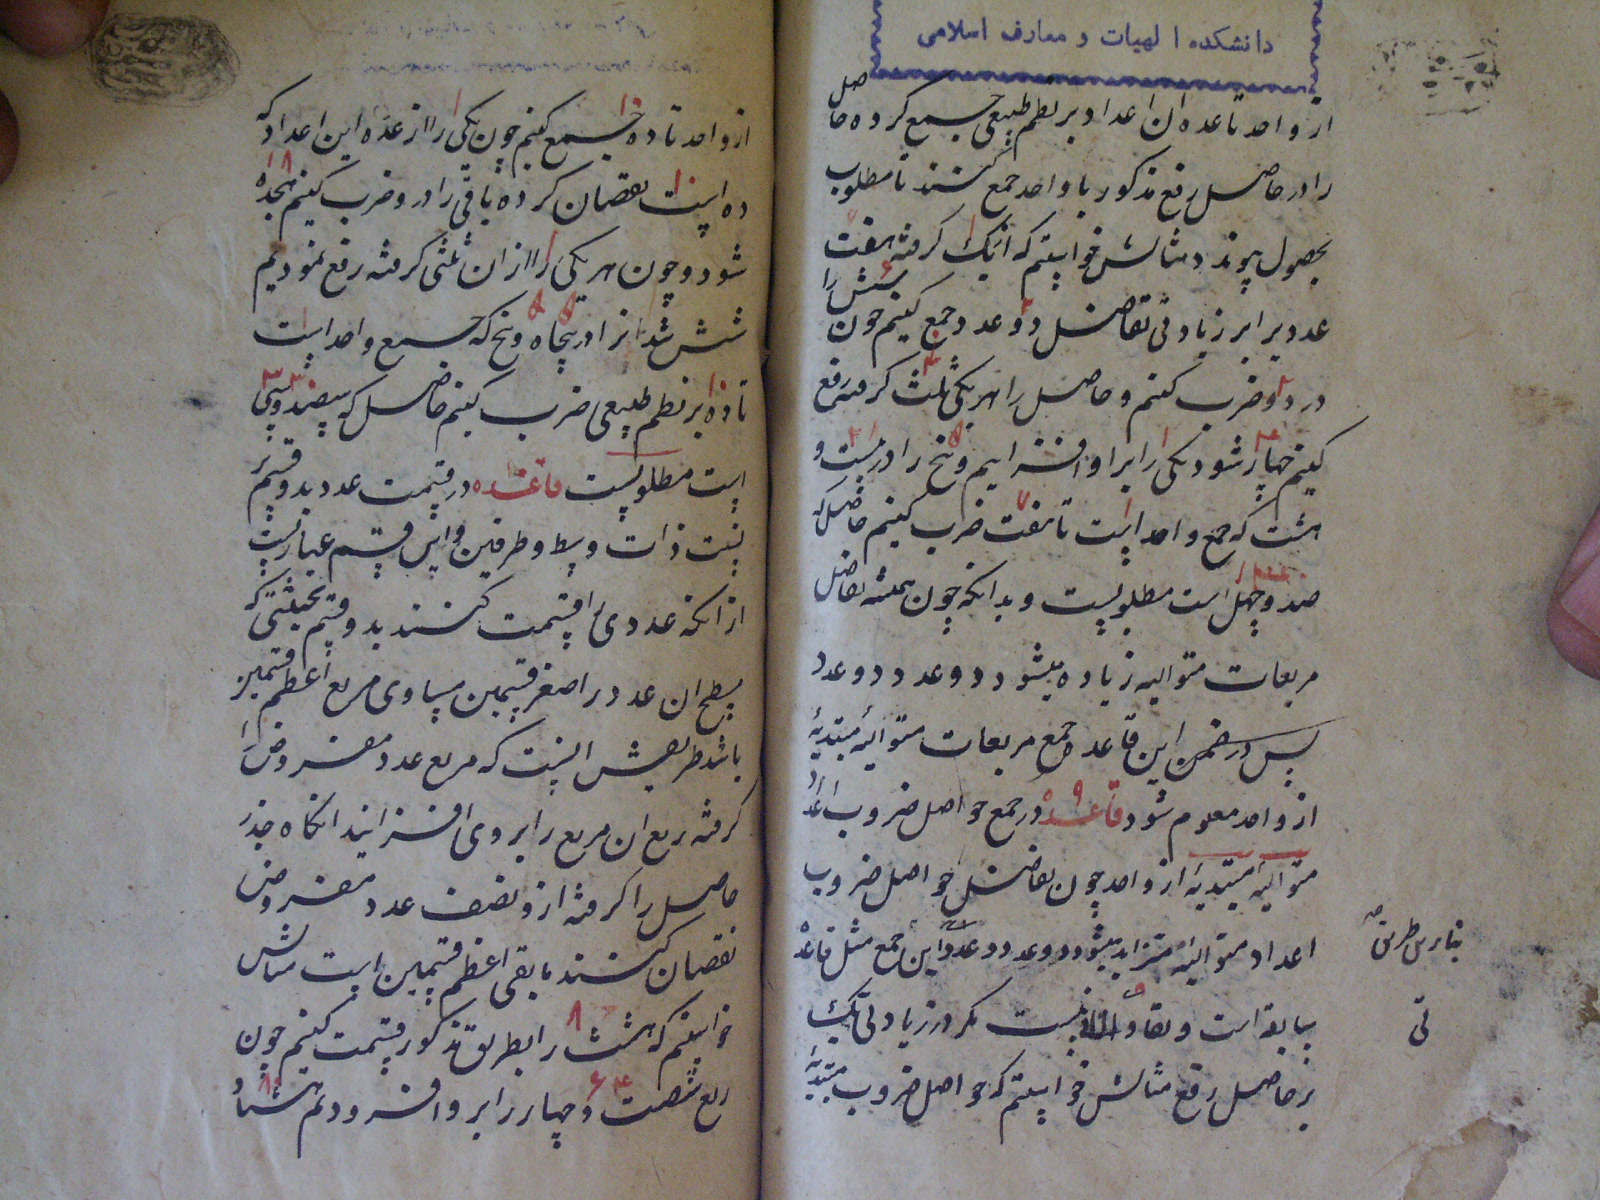 دانشکده الهیات و معارف اسلامی
از واحد تا عده ان اعداد بر نظم طبیعی جمع کرده حاصل
را در حاصل رفع مذکور با واحد جمع کنند تا مطلوب
بحصول پیوندد مثالش خواستم که از یک گرفته هفت
عدد برابر زیادتی تفاضل دو عدد جمع کنیم چون شش را
در دو ضرب کنیم و حاصل را بهر یکی ثلث گرفته رفع
کنیم چهار شود یکی را برو افزاییم و پنج را در بیست و
هشت که جمع واحد است تا هفت ضرب کنیم حاصل که
صد و چهل است مطلوبست و بدانکه چون همیشه تفاضل
مربعات متوالیه زیاده میشود دو عدد دو عدد
پس در ضمن این قاعده جمع مربعات متوالیهٔ مبتدیهٔ
از واحد معلوم شود قاعده ۹ در جمع حواصل ضروب اعداد
متوالیه مبتدیه از واحد چون تفاضل حواصل ضروب
اعداد متوالیه متزاید میشود دو عدد دو عدد این جمع مثل قاعده
سابقه است و تفاوت نیست مگر در زیادتی یک
بر حاصل رفع مثالش خواستم که حواصل ضروب مبتدیهٔ
بنا برین طریق
تی
از واحد تا ده جمع کنیم چون یکی را از عده این اعداد که
ده است نقصان کرده باقی را در دو ضرب کنیم هجده
شود و چون بهر یکی را از ان ثلثی گرفته رفع نمودیم
شش شد انرا در پنجاه و پنج که جمع واحد است
تا ده بر نظم طبیعی ضرب کنیم حاصل که سیصد و سی
است مطلوبست قاعده در قسمت عدد بدو قسم
نسبت ذات وسط و طرفین و این قسم عبارتست
از انکه عددی را قسمت کنند بدو قسم بحیثیتی که
مسطح ان عدد در اصغر قسمین مساوی مربع اعظم قسمین
باشد طریقش انست که مربع عدد مفروض را
گرفته ربع ان مربع را بر وی افزایند انگاه جذر
حاصل را گرفته از و نصف عدد مفروض
نقصان کنند ما بقی اعظم قسمین است مثالش
خواستم که هشت را بطریق مذکور قسمت کنیم چون
ربع شصت و چهار را برو افزودیم هشتاد